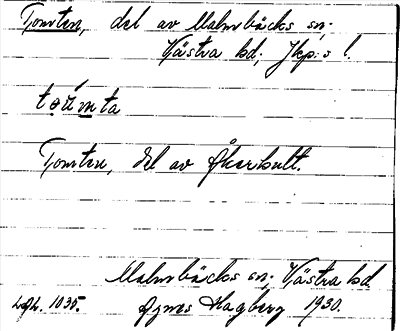 Tomten, del av Malmbäcks sn.
Västra hd. Jkp:s l.
Tomten, del av Åkerhult.
Malmbäcks sn. Västra hd.
Lgh. 1035. Agnes Hagberg 1930.